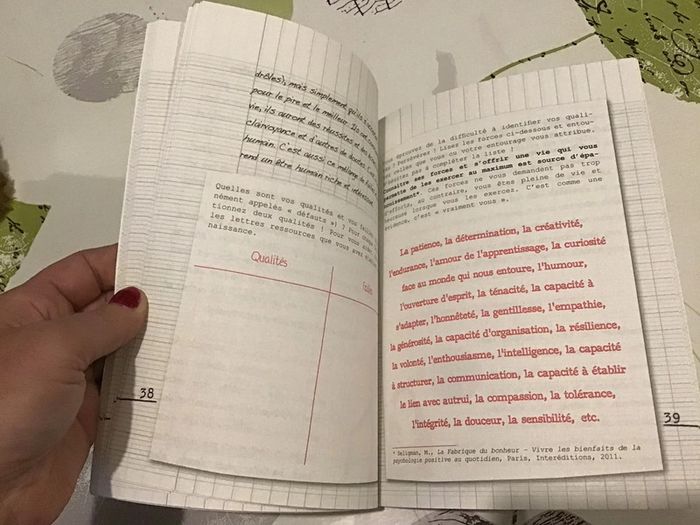 drôles), mais simplement, qu'ils s'
pour le pire et le meilleur. Ils ont
vie, ils auront des réussites et des
clairvoyance et d'autres de doutes.
human. C'est aussi, ce mélange
rend un être humain riche et intéressant.
Quelles sont vos qualités et vos failles
nément appelés « défauts ») ? Pour chaque
tionnez deux qualités ! Pour vous aider,
les lettres ressources que vous avez
naissance.
Qualités
Failles
38
Vous éprouvez de la difficulté à identifier vos quali-
tés ? Persévérez ! Lisez les forces ci-dessous et entou-
rez celles que vous ou votre entourage vous attribue.
N'hésitez pas à compléter la liste !
Connaître ses forces et s'offrir une vie qui vous
permette de les exercer au maximum est source d'épa-
nouissement*. Ces forces ne vous demandent pas trop
d'efforts, au contraire, vous êtes pleine de vie et
heureuse lorsque vous les exercez. C'est comme une
évidence, c'est « vraiment vous ».
La patience, la détermination, la créativité,
l'endurance, l'amour de l'apprentissage, la curiosité
face au monde qui nous entoure, l'humour,
l'ouverture d'esprit, la ténacité, la capacité à
s'adapter, l'honnêteté, la gentillesse, l'empathie,
la générosité, la capacité d'organisation, la résilience,
la volonté, l'enthousiasme, l'intelligence, la capacité
à structurer, la communication, la capacité à établir
le lien avec autrui, la compassion, la tolérance,
l'intégrité, la douceur, la sensibilité, etc.
* Seligman, M., La Fabrique du bonheur – Vivre les bienfaits de la
psychologie positive au quotidien, Paris, Interéditions, 2011.
39